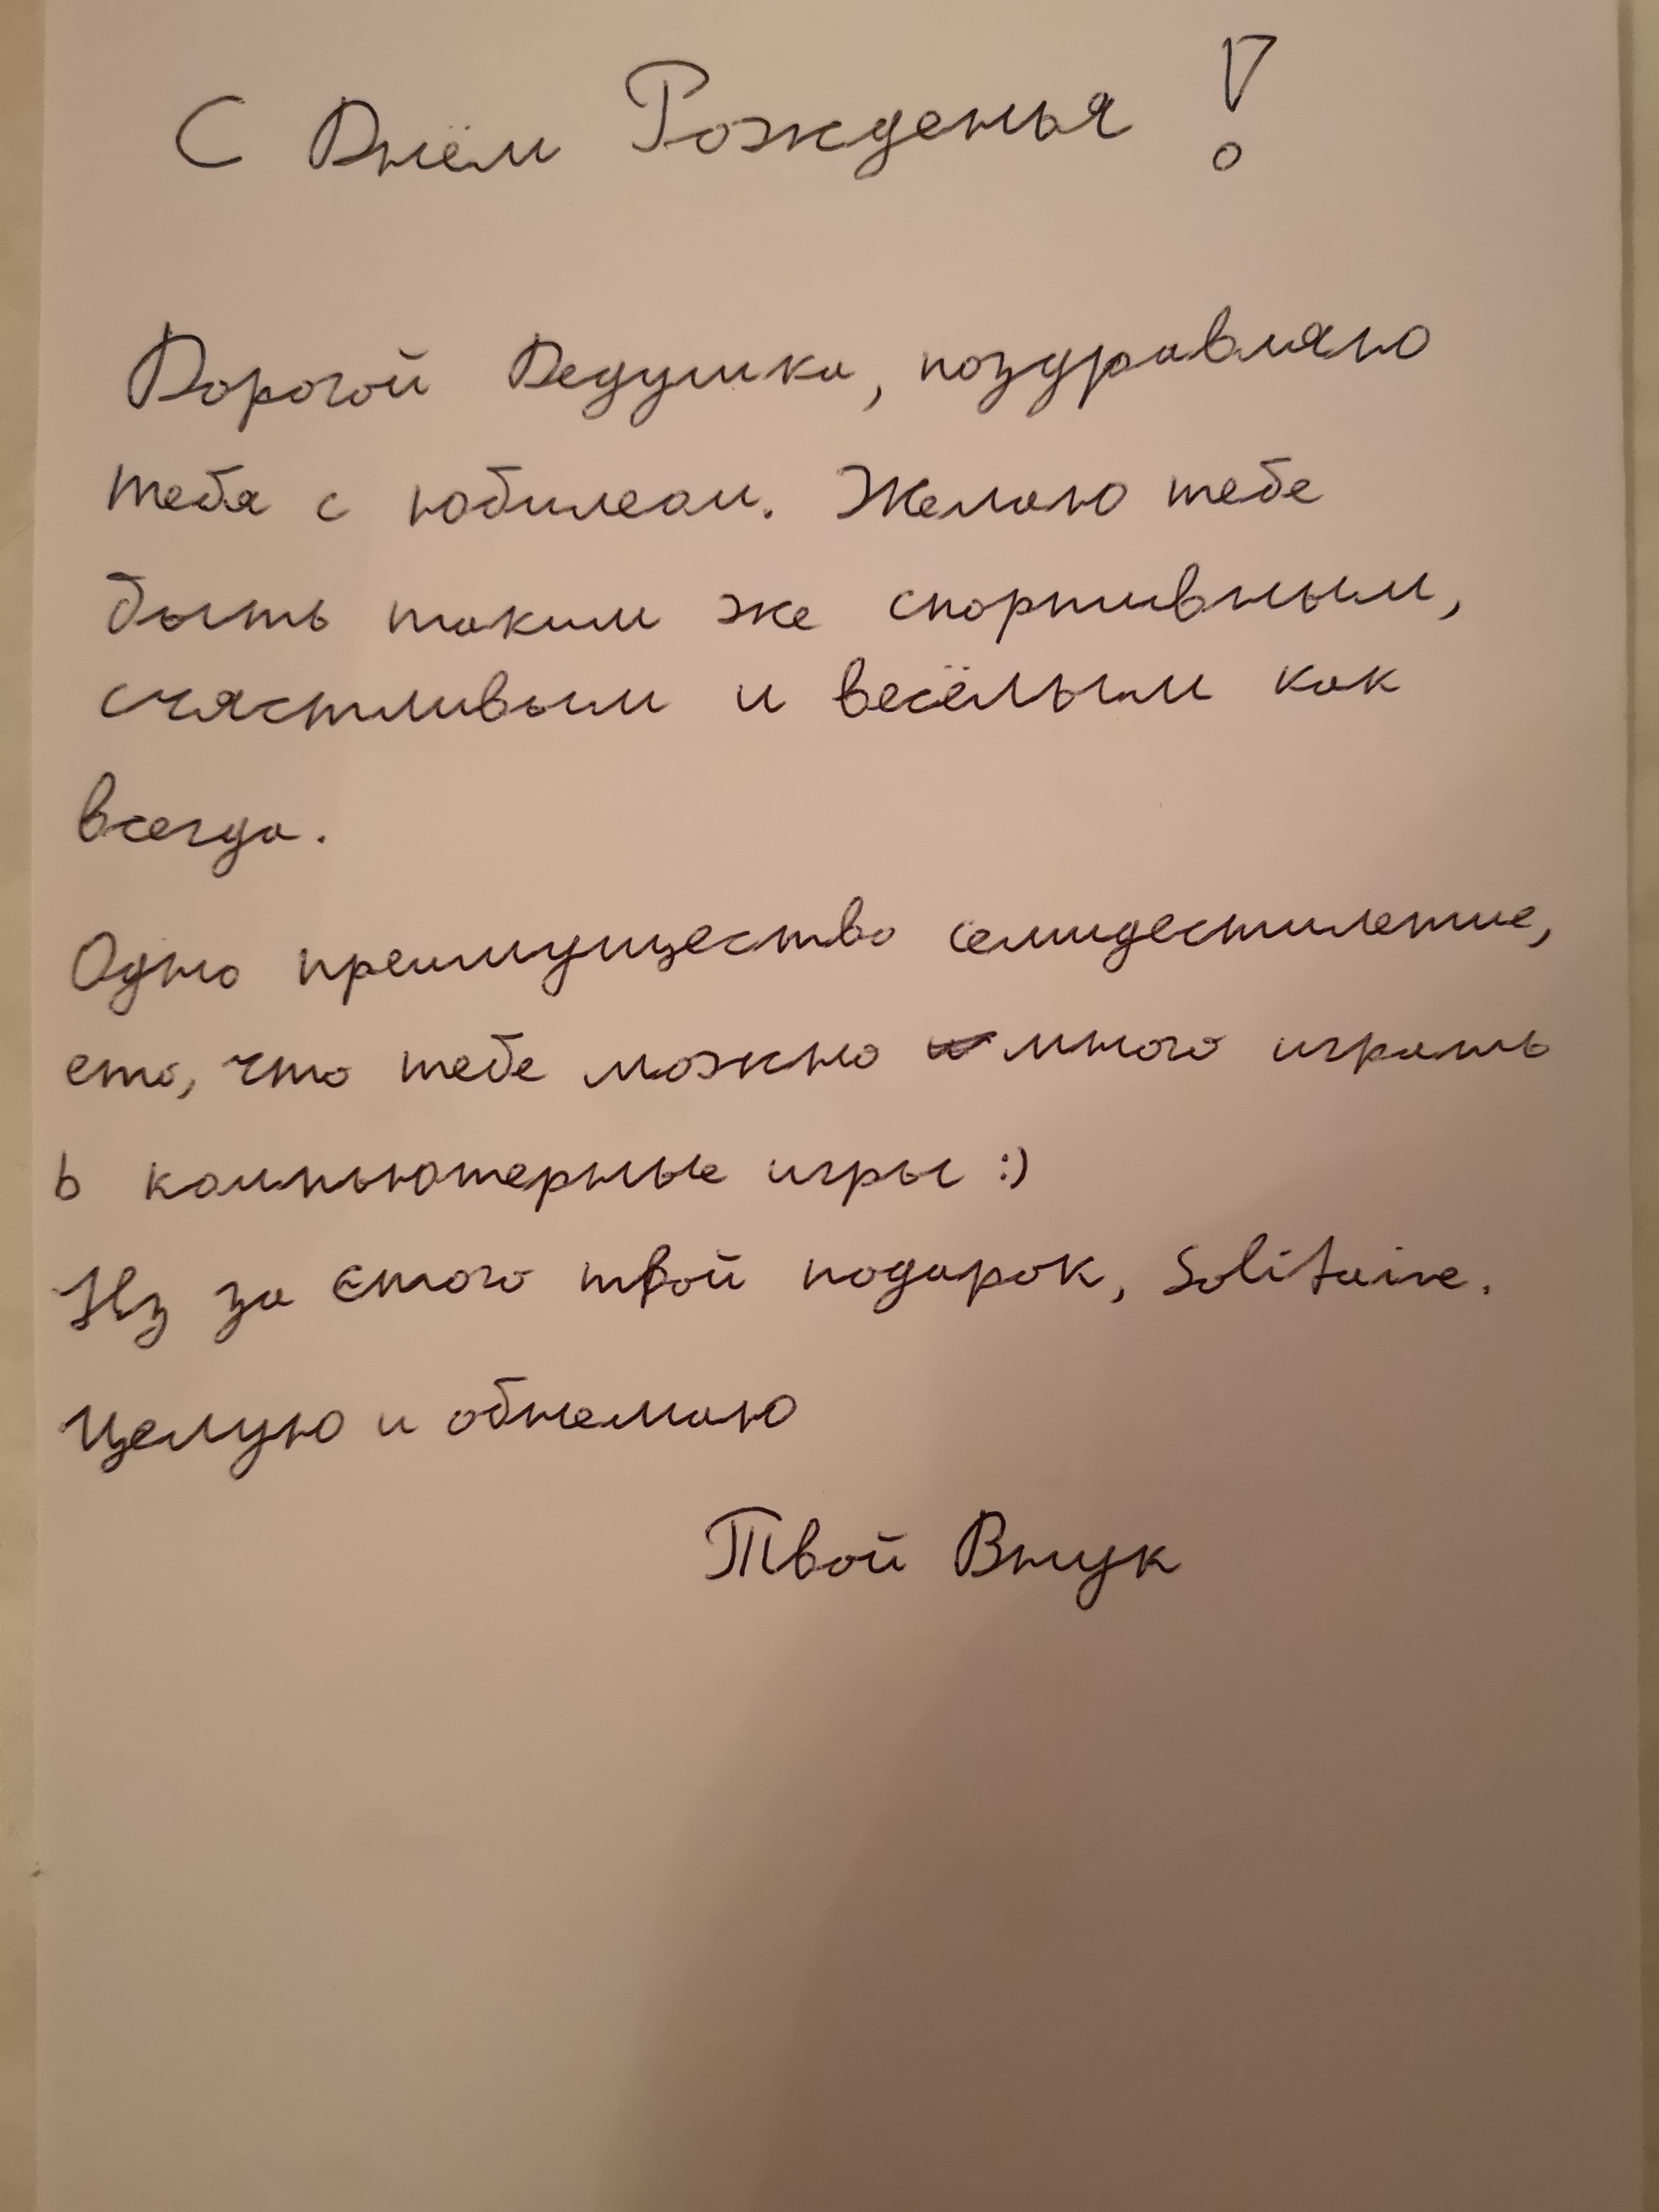 С Днём Рожденья!
Дорогой Дедушка, поздравляю
тебя с юбилеом. Желаю тебе
быть таким же спортивным,
счястливым и весёлым как
всегда.
Одно преимущество семидестилетие,
ето, что тебе можно много играть
в компьютерные игры :)
Из за етого твой подарок, Solitaire.
Целую и обнемаю
Твой Внук